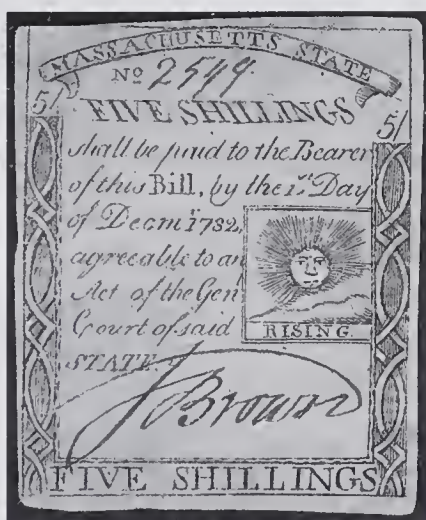 MASSACHUSETTS STATE
Nº 2549.
5/
FIVE SHILLINGS
5/
shall be paid to the Bearer
of this Bill, by the 1.st Day
of Decmr. 1782,
agreeable to an
Act of the Gen
Court of said
RISING.
STATE.
J Brown
FIVE SHILLINGS